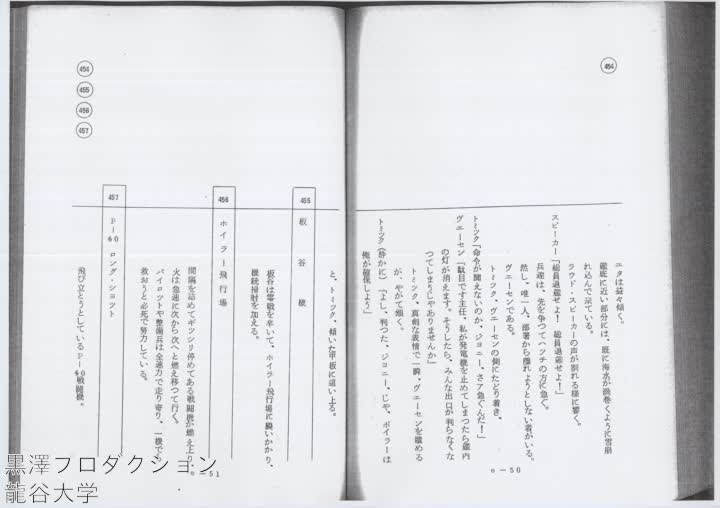 454
ユタは益々傾く。
艦底に近い部分には、既に海水が渦巻くように雪崩
れ込んで来ている。
ラウド・スピーカーの声が割れる様に響く。
スピーカー「総員退艦せよ！　総員退艦せよ！」
兵達は、先を争つてハツチの方に急ぐ。
然し、唯一人、部署から離れようとしない者がいる。
ヴエーセンである。
トミツク、ヴエーセンの側にたどり着き、
トミツク「命令が聞えないのか、ジョニー、さア急ぐんだ！」
ヴエーセン「駄目です主任、私が発電機を止めてしまつたら艦内
の灯が消えます。そうしたら、みんな出口が判らなくな
つてしまうじやありませんか」
トミツク、真剣な表情で一瞬、ヴエーセンを瞶める
が、やがて頷く。
トミツク（静かに）「よし、判つた、ジョニー、じや、ボイラーは
俺が確保しよう」
e—50
と、トミツク、傾いた甲板に這い上る。
455
板谷機
板谷は零戦を率いて、ホイラー飛行場に襲いかかり、
機銃掃射を加える。
456
ホイラー飛行場
間隔を詰めてギツシリ停めてある戦闘機が燃え上り、
火は急速に次から次へと燃え移つて行く。
パイロツトや整備兵は全速力で走り寄り、一機でも
救おうと必死で努力している。
457
P—40　ロング・ショツト
飛び立とうとしているP—40戦闘機。
454
455
456
457
e—51
黒澤プロダクション
龍谷大学